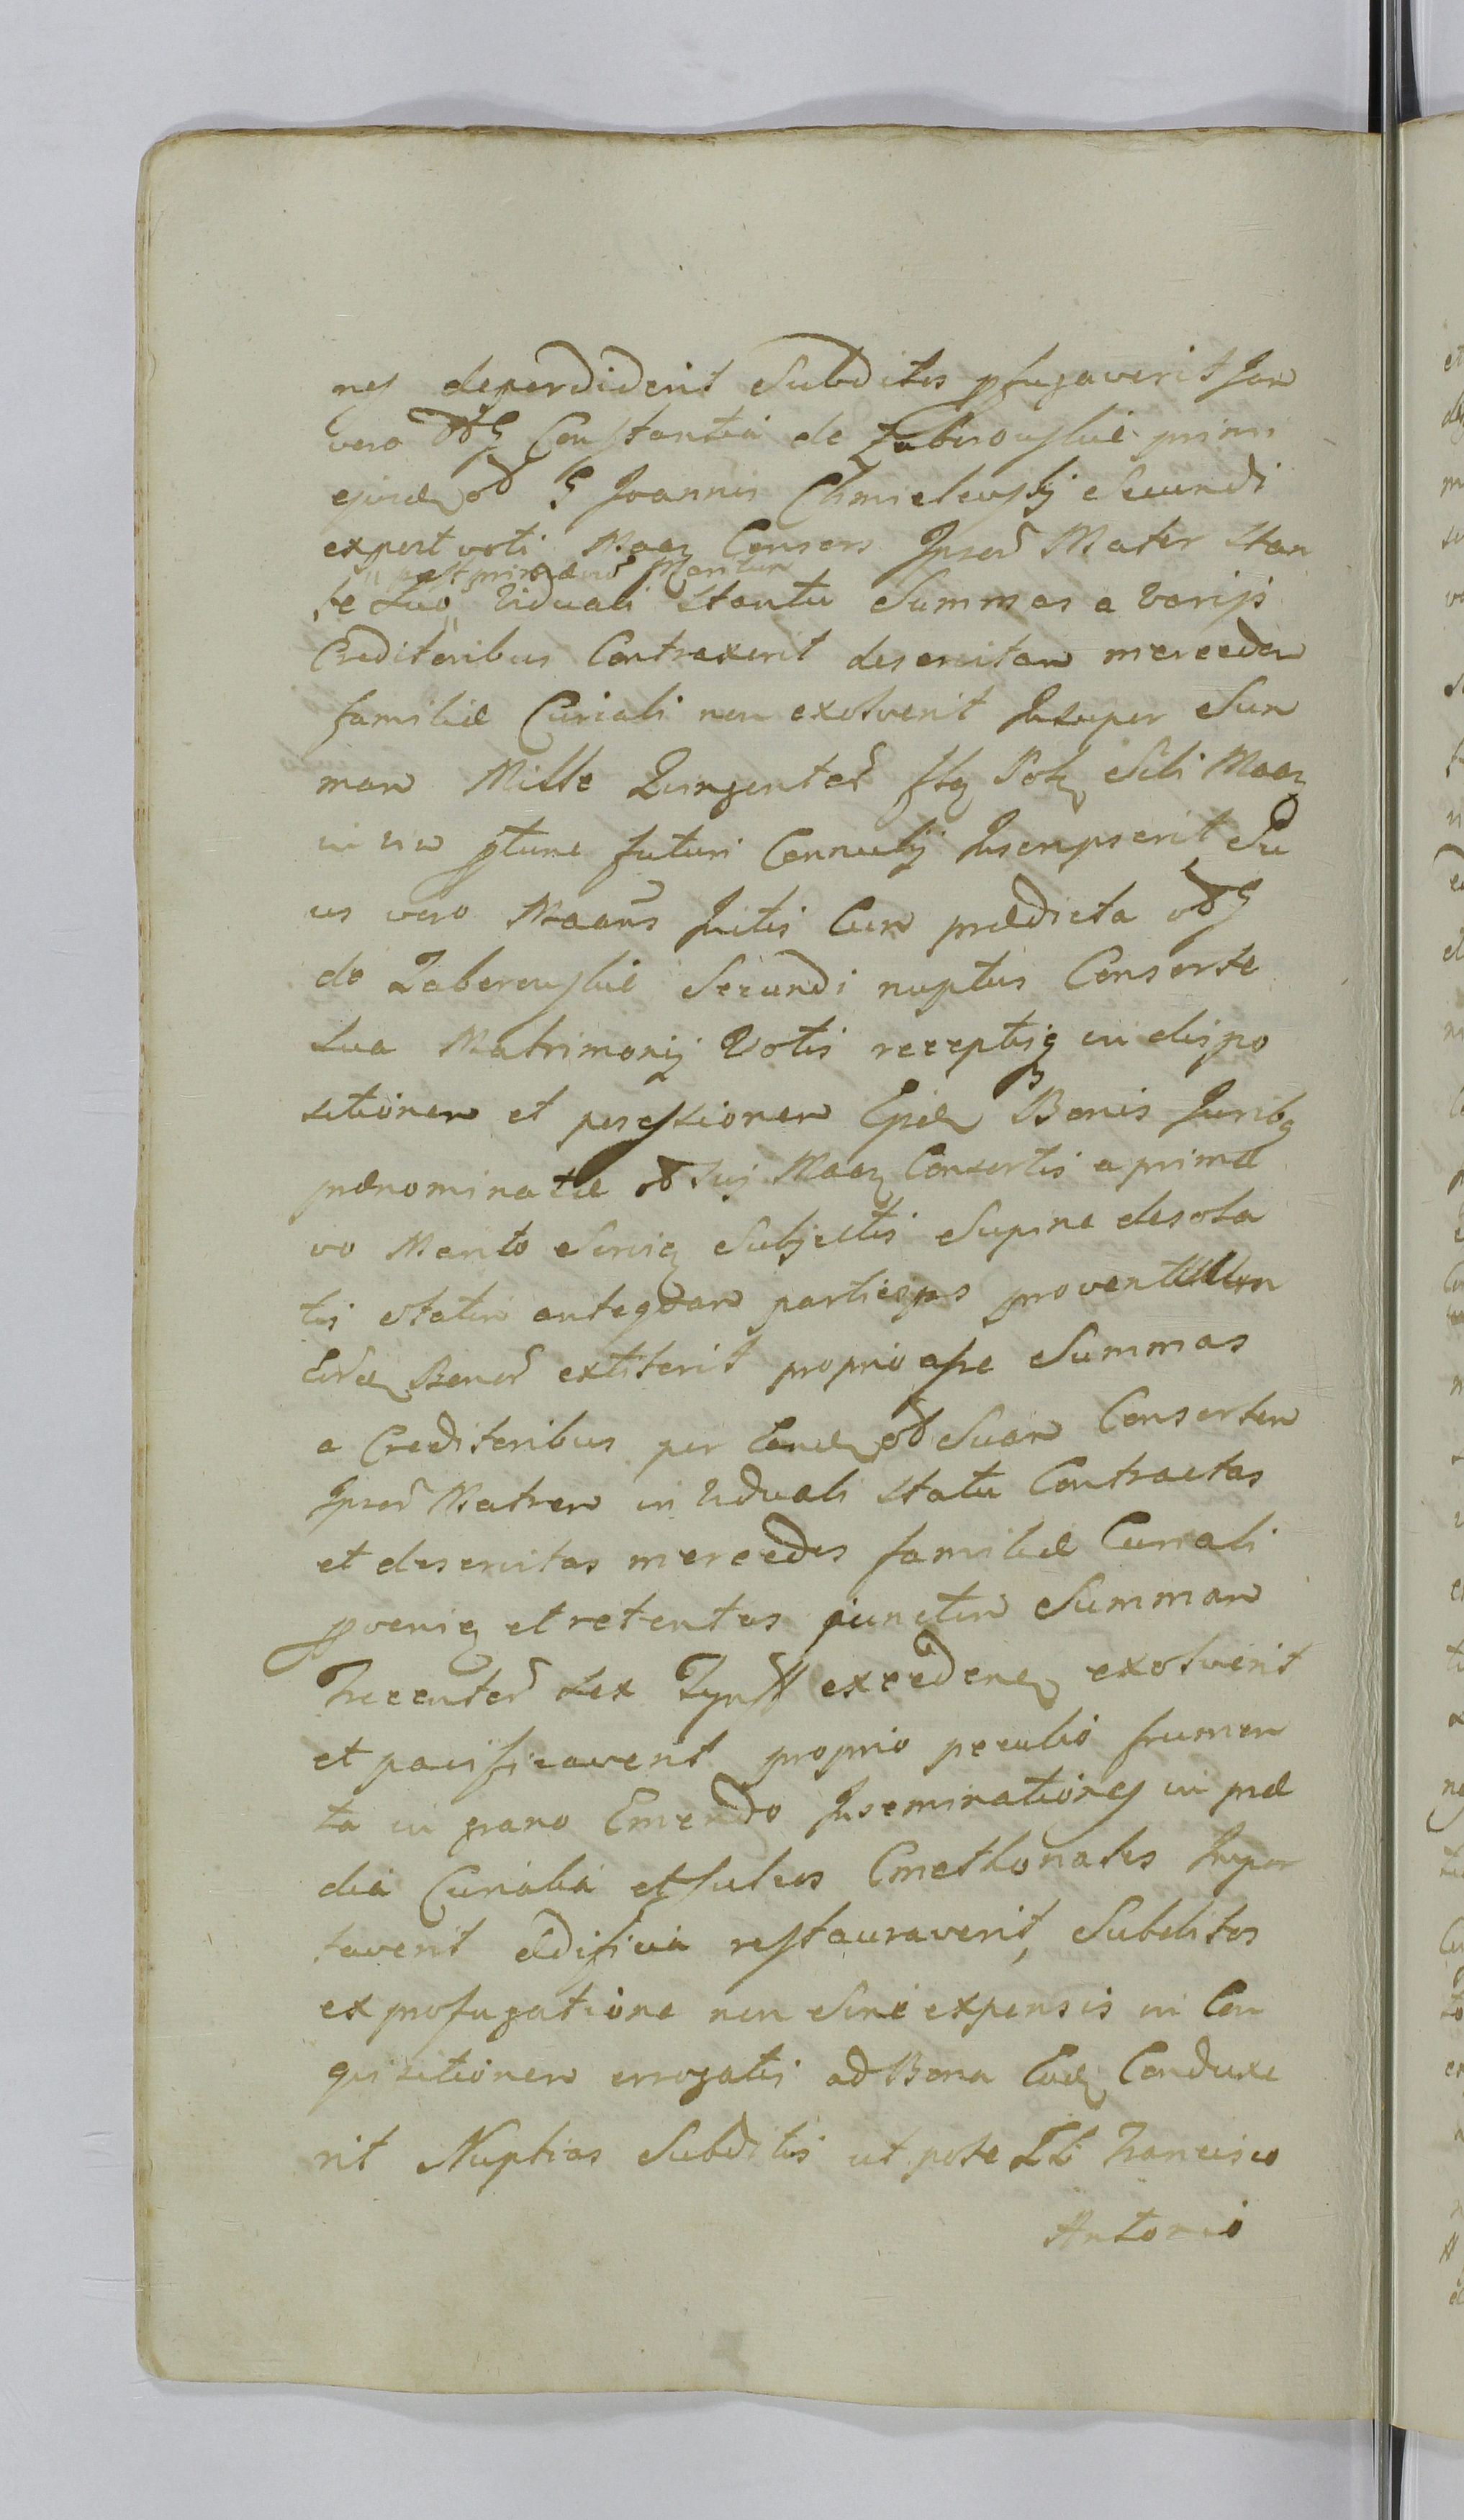 nes deperdiderit Subditos pfugaverit Jam
vero Gd Constantia de Zaborowskie primi
ejusdem Gd Joannis Chmielewskij Secundi
expert voti Maan Consors Ipsor Mater stan
" post primaevū Maritum
te suo " Viduali statu Summas a varijs
Creditoribus Contraxerit deservitam mercedem
familiae Curiali non exolverit Insuper Sum
mam Mille Quingentor flor Pol Sibi Maan
in vim ptunc futuri Connubij Inscripserit Su
us vero Maans Initis Cum praedicta Gd
de Zaborowskie Secundi nuptus Consorte
sua Matrimonij Votis receptisq in dispo
sitionem et possessionem Ejusdem Bonis Juribq
praenominatae Gd suj Maan Consortis a primae
vo Marito Servien Subjectis Supine desola
tis statim antequam particeps proventuum
Eorundem Bonor extiterit proprio asse Summas
a Creditoribus per Eandem Gd Suam Consortem
Ipsor Matrem in Viduali statu Contractas
et deservitas mercedes familiae Curiali
pvenien et retentas junctim Summam
Trecentor sex Tynff excedenen exolverit
et pacificaverit proprio peculio frumen
ta in grano Emendo Inseminationes in prae
dia Curialia et sulcos Cmethonales Impor
taverit aedificia restauraverit, Subditos
ex profugatione non Sine expensis in Con
quisitionem errogatis ad Bona Eadem Conduxe
rit Nuptias Subditis ut pote LL Francisco
Antonio